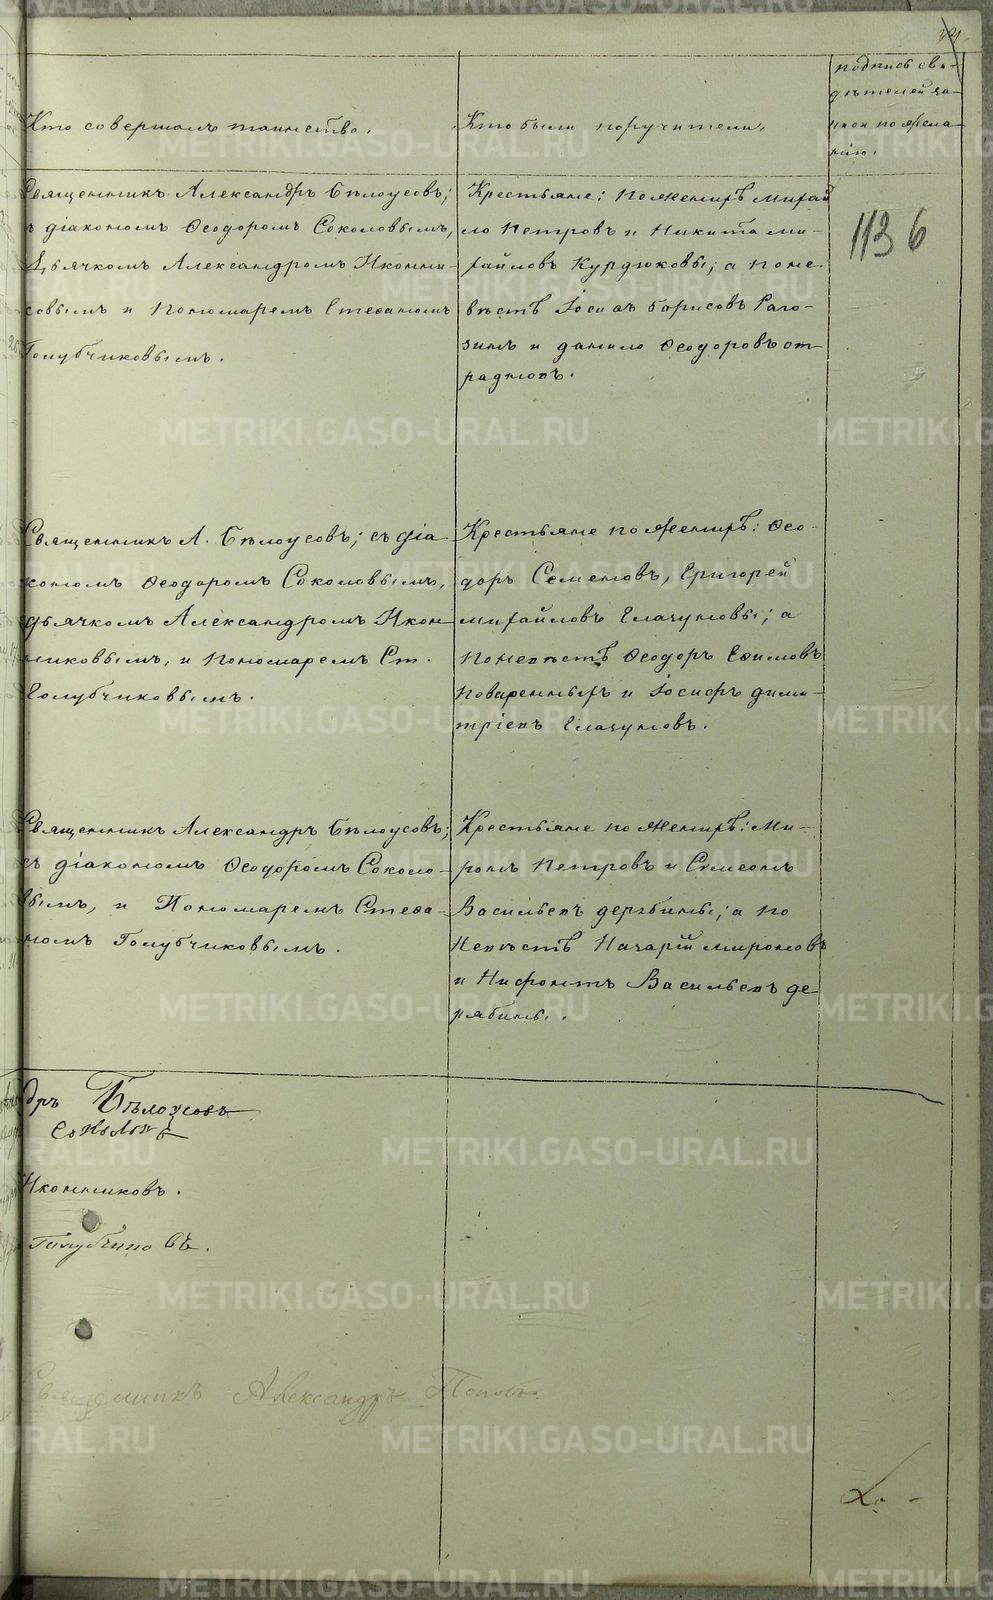 Кто совершалъ таинство.
Кто были поручители.
подпись сви-
дѣтелей за-
писи по жела-
нію.
Священникъ Александръ Бѣлоусовъ;
съ діакономъ Ѳеодоромъ Соколовымъ,
Дьячкомъ Александромъ Иконни-
ковымъ и Пономаремъ Стефаномъ
Голубчиковымъ.
Крестьяне: по женихѣ Михай
ло Петровъ и Никита Ми-
хайловъ Курдюковы; а по не-
вѣстѣ Іосифъ Борисовъ Раго-
зинъ и Данило Ѳеодоровъ От-
радновъ.
1136
Священникъ А. Бѣлоусовъ; съ діа-
кономъ Ѳеодоромъ Соколовымъ,
дьячкомъ Александромъ Икон-
никовымъ, и Пономаремъ Ст.
Голубчиковымъ.
Крестьяне по женихѣ: Ѳео-
доръ Семеновъ, Григорей
Михайловъ Глазуновы; а
по невѣстѣ Ѳеодоръ Ефимовъ
Поваренныхъ и Іосифъ Дими-
тріевъ Глазуновъ.
Священникъ Александръ Бѣлоусовъ;
съ діакономъ Ѳеодоромъ Соколо-
вымъ, и Пономаремъ Стефа-
номъ Голубчиковымъ.
Крестьяне по женихѣ: Ми-
ронъ Петровъ и Симеонъ
Васильевъ Дерябины; а по
невѣстѣ Назарій Мироновъ
и Нифонтъ Васильевъ Де
рябины.
дръ Бѣлоусовъ
Соколовъ
Иконниковъ.
Голубчиковъ.
Священникъ Александръ Поповъ.
METRIKI.GASO-URAL.RU